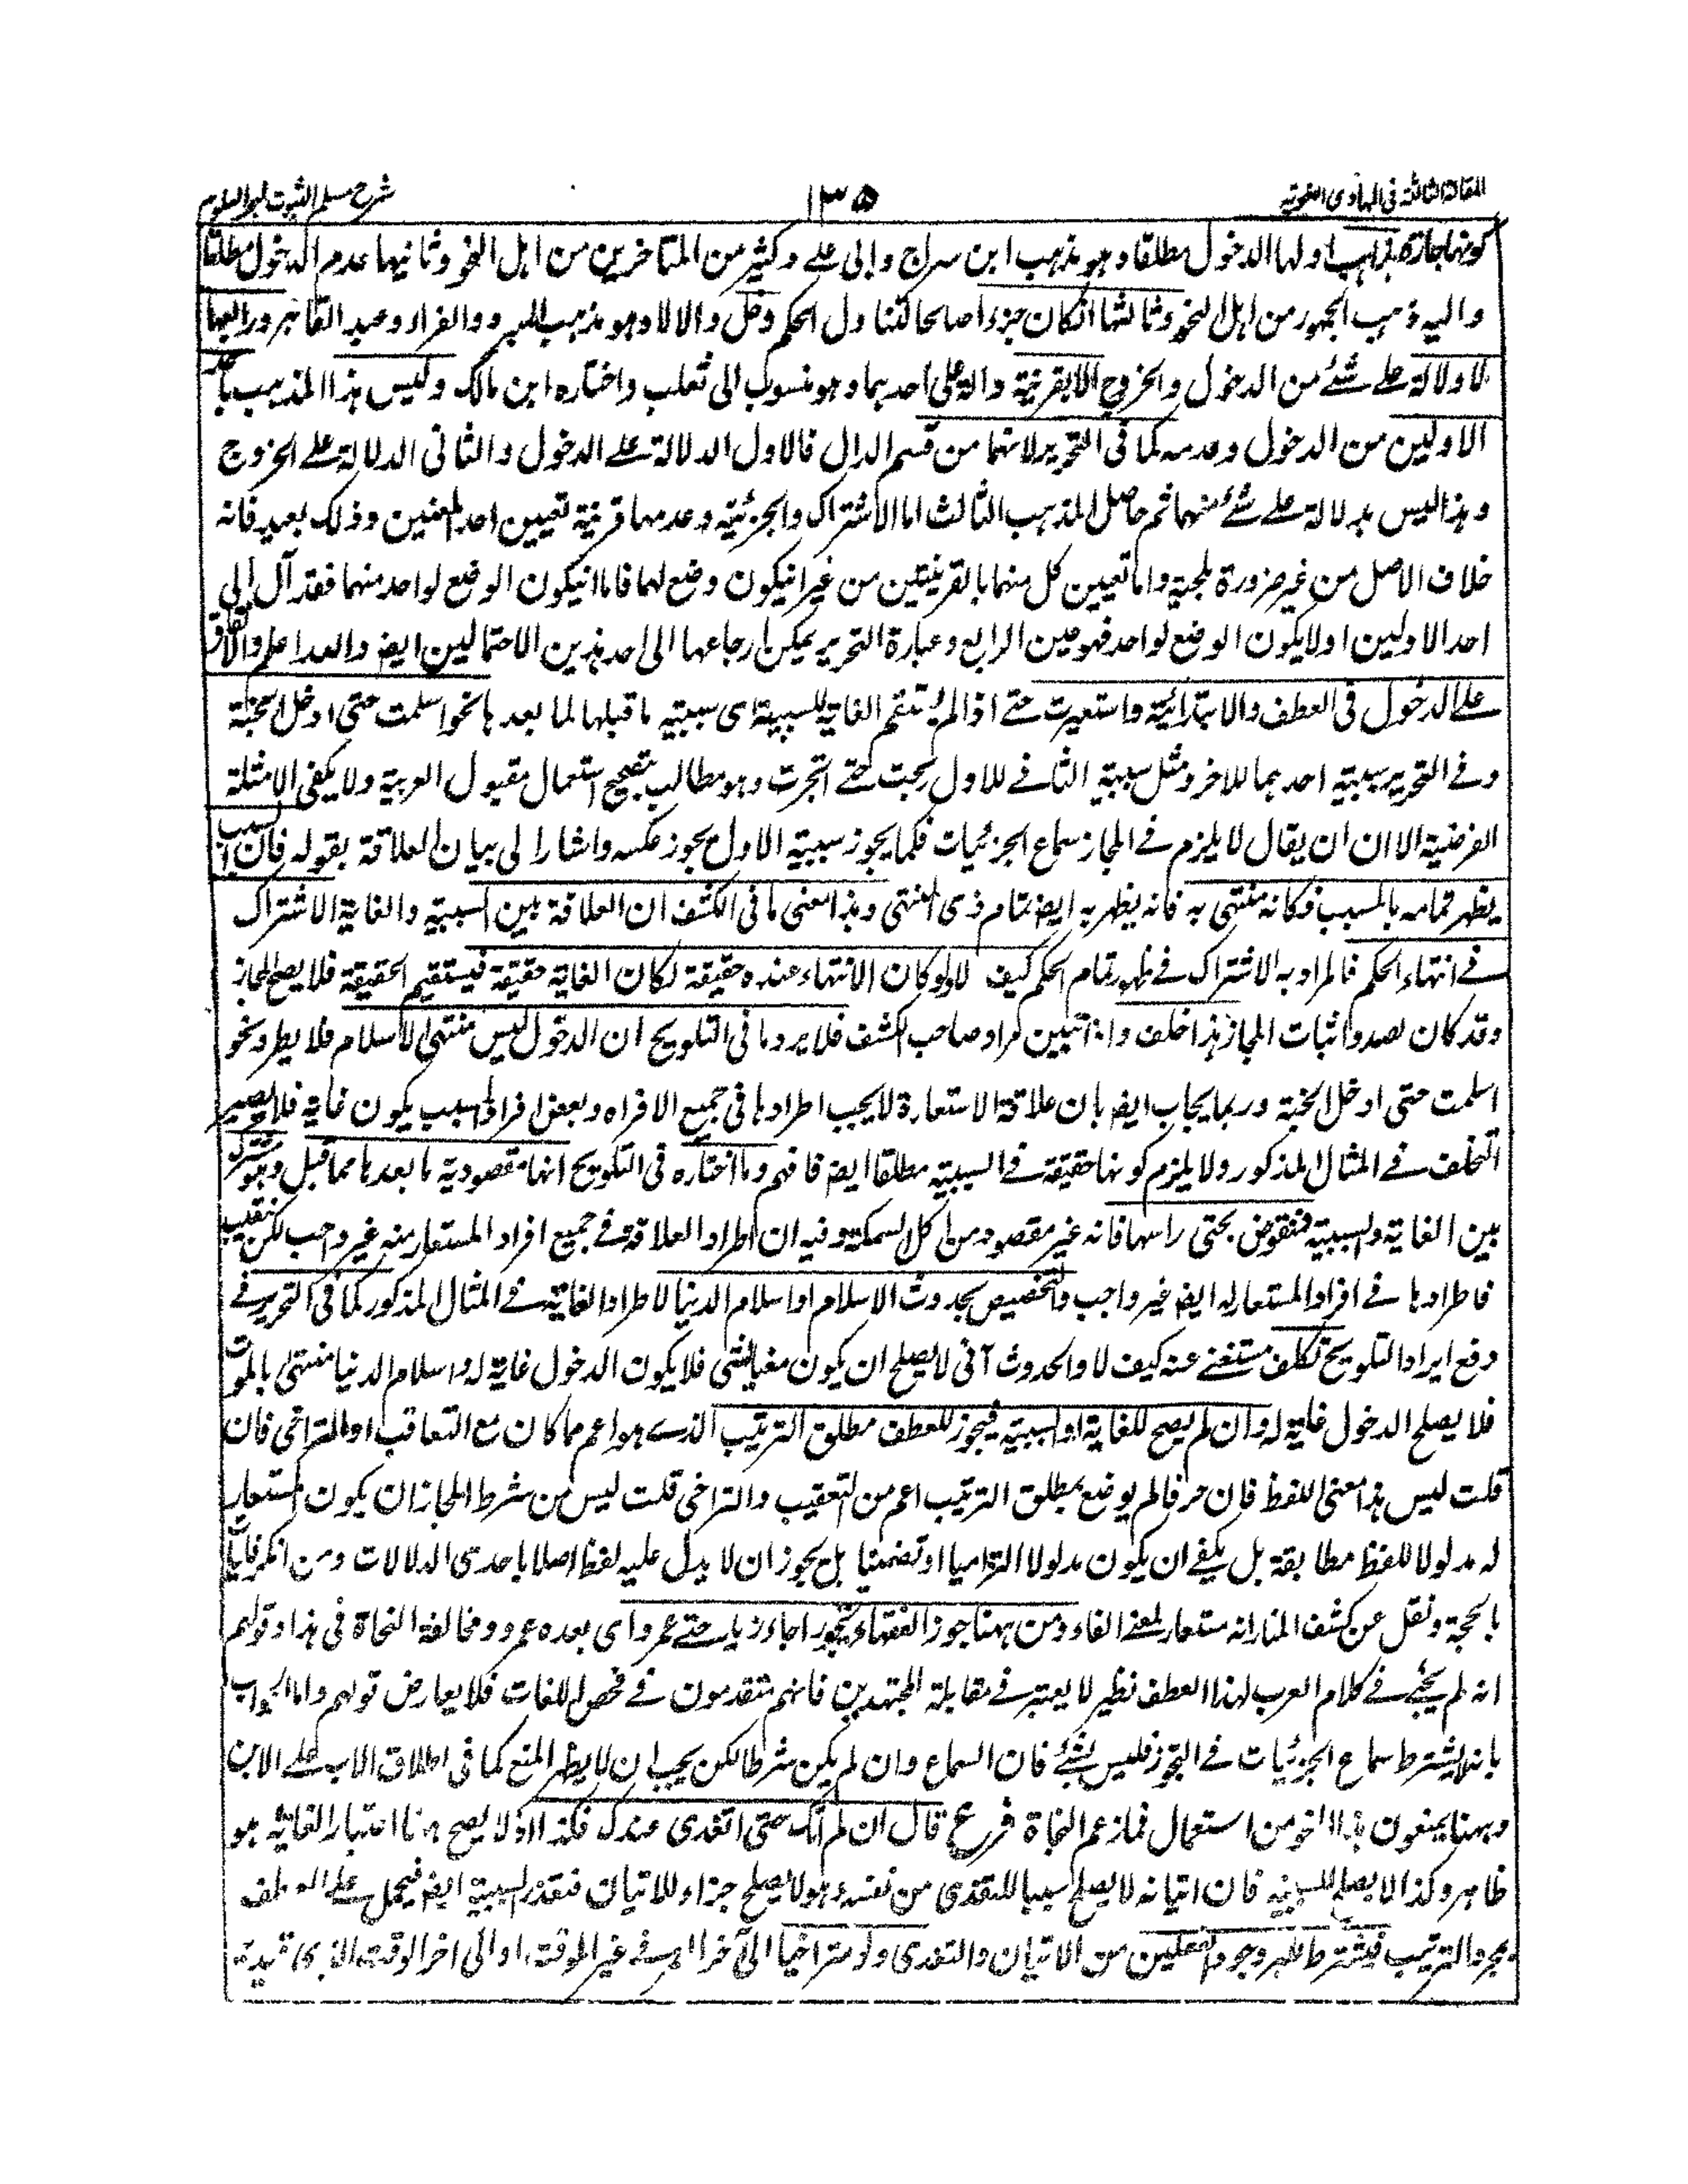 المقالة الثالثة فى المبادى اللغوية ١٣٥ شرح مسلم الثبوت لبحر العلوم
كونها جارة مذاهب اولها الدخول مطلقا وهو مذهب ابن سراج وابى على وكثير من المتاخرين من اهل النحو وثانيها عدم الدخول مطلقا
واليه ذهب الجمهور من اهل النحو وثالثها ان كان جزءا صالحا لتناول الحكم دخل والا لا وهو مذهب المبرد والفراء وعبد القاهر ورابعها
لا دلالة على شئ من الدخول والخروج الا بقرينة دالة على احدهما وهو منسوب الى ثعلب واختاره ابن مالك وليس هذا المذهب باحد
الاولين من الدخول وعدمه كما فى التحرير لانهما من قسم الدال فالاول الدلالة على الدخول والثانى الدلالة على الخروج
وهذا ليس بدلالة على شئ منهما ثم حاصل المذهب الثالث اما الاشتراك والجزئية وعدمها قرينة تعيين احد المعنيين وذلك بعيد فانه
خلاف الاصل من غير ضرورة ملجئة واما تعيين كل منهما بالقرينتين من غير ان يكون وضع لهما فاما ان يكون الوضع لواحد منهما فقد آل الى
احد الاولين او لا يكون الوضع لواحد فهو عين الرابع وعبارة التحرير يمكن ارجاعها الى احد هذين الاحتمالين ايض والعدا على والاتفاق
على الدخول فى العطف والابتدائية واستعيرت حتى اذا لم تستقم الغاية للسببية اى سببية ما قبلها لما بعدها نحو اسلمت حتى ادخل الجنة
وفى التحرير سببية احدهما للآخر ومثل سببية الثانى للاول ربحت حتى اتجرت وهو مطالب بتصحيح استعمال مقبول العربية ولا يكفى الامثلة
الفرضية الا ان يقال لا يلزم فى المجاز سماع الجزئيات فكما يجوز سببية الاول يجوز عكسه واشار الى بيان العلاقة بقوله فان السبب
يظهر تمامه بالمسبب فكانه منتهى به فانه يظهر به ايض تمام ذى المنتهى وهذا معنى ما فى الكشف ان العلاقة بين السببية والغاية الاشتراك
فى انتهاء الحكم فالمراد به الاشتراك فى ظهور تمام الحكم كيف لا ولو كان الانتهاء عنده حقيقة لكان الغاية حقيقة فيستقيم الحقيقة فلا يصح المجاز
وقد كان بصدد اثبات المجاز هذا خلف واذا تبين مراد صاحب الكشف فلا يرد ما فى التلويح ان الدخول ليس منتهى للاسلام فلا يطرد نحو
اسلمت حتى ادخل الجنة وربما يجاب ايض بان علاقة الاستعارة لا يجب اطرادها فى جميع الافراد وبعض افراد السبب يكون غاية فلا يصير
التخلف فى المثال المذكور ولا يلزم كونها حقيقة فى السببية مطلقا ايض فافهم وما اختاره فى التلويح انها مقصودية ما بعدها مما قبل وهو مشترك
بين الغاية والسببية فمنقوض بحتى راسها فانه غير مقصود من اكل السمكة وفيه ان اطراد العلاقة فى جميع افراد المستعار منه غير واجب لكن
فاطرادها فى افراد المستعار له ايض غير واجب والتخصيص بحدوث الاسلام او اسلام الدنيا لاطراد الغاية فى المثال المذكور كما فى التحرير فى
دفع ايراد التلويح تكلف مستغنى عنه كيف لا والحدوث آنى لا يصلح ان يكون مغيا بشى فلا يكون الدخول غاية له واسلام الدنيا منتهى بالموت
فلا يصلح الدخول غاية له وان لم يصح للغاية او السببية فيجوز للعطف مطلق الترتيب الذى هو اعم مما كان مع التعاقب او التراخى فان
قلت ليس هذا معنى اللفظ فان حرفا لم يوضع بمطلق الترتيب اعم من التعقيب والتراخى قلت ليس من شرط المجاز ان يكون المستعار
له مدلولا للفظ مطابقة بل يكفى ان يكون مدلولا التزاميا او تضمنيا بل يجوز ان لا يدل عليه لفظ اصلا باحدى الدلالات ومن انكر فليات
بالحجة ونقل عن كشف المنار انه مستعار لمعنى الفاء ومن ههنا جوز الفقهاء تجوزا جاء زيد حتى عمرو اى بعده عمرو ومخالفة النحاة فى هذا وقولهم
انه لم يجئ فى كلام العرب لهذا العطف نظير لا يعتبر فى مقابلة المجتهدين فانهم متقدمون فى فحص اللغات فلا يعارض قولهم واما الجواب
بانه لا يشترط سماع الجزئيات فى التجوز فليس بشئ فان السماع وان لم يكن شرطا لكن يجب ان لا يظهر المنع كما فى اطلاق الاب على الابن
وههنا يمنعون هذا النحو من استعمال فما زعم النحاة فرع قال ان لم آتك حتى اتغدى عندك فكذا اذ لا يصح هنا اعتبار الغاية هو
ظاهر وكذا لا يصلح للسببية فان اتيانه لا يصلح سببا للتغدى من نفسه وهو لا يصلح جزاء للاتيان فتعذر السببية ايض فيحمل على العطف
بمجرد الترتيب فيشترط للبر وجود الفعلين من الاتيان والتغدى ولو متراخيا الى آخر العمر فى غير الموقتة او الى اخر الوقت